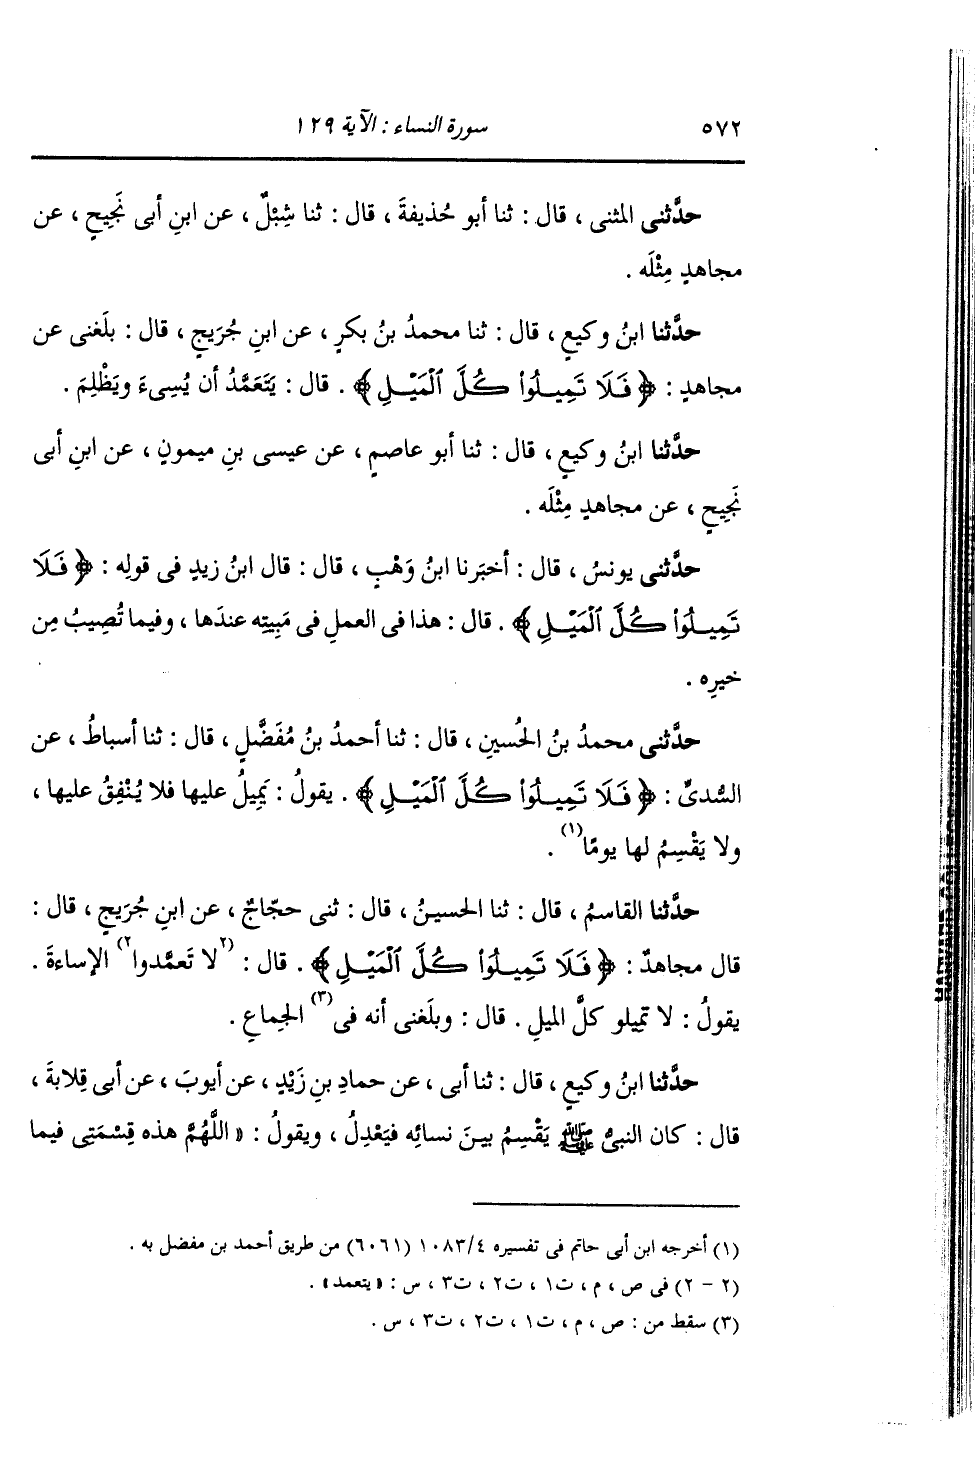 ٥٧٢ سورة النساء : الآية ١٢٩
حدَّثنى المثنى ، قال : ثنا أبو حُذيفةَ ، قال : ثنا شِبْلٌ ، عن ابنِ أبى نَجِيحٍ ، عن
مجاهدٍ مِثْلَه .
حدَّثنا ابنُ وكيعٍ ، قال : ثنا محمدُ بنُ بكرٍ ، عن ابنِ جُرَيجٍ ، قال : بلَغنى عن
مجاهدٍ : ﴿ فَلَا تَمِيلُوا۟ كُلَّ ٱلْمَيْلِ ﴾ . قال : يَتَعَمَّدُ أن يُسِىءَ ويَظْلِمَ .
حدَّثنا ابنُ وكيعٍ ، قال : ثنا أبو عاصمٍ ، عن عيسى بنِ ميمونٍ ، عن ابنِ أبى
نَجِيحٍ ، عن مجاهدٍ مِثْلَه .
حدَّثنى يونسُ ، قال : أخبَرنا ابنُ وَهْبٍ ، قال : قال ابنُ زيدٍ فى قولِه : ﴿ فَلَا
تَمِيلُوا۟ كُلَّ ٱلْمَيْلِ ﴾ . قال : هذا فى العملِ فى مَبِيتِه عندَها ، وفيما تُصِيبُ مِن
خيرِه .
حدَّثنى محمدُ بنُ الحُسينِ ، قال : ثنا أحمدُ بنُ مُفَضَّلٍ ، قال : ثنا أسباطُ ، عن
السُّدىِّ : ﴿ فَلَا تَمِيلُوا۟ كُلَّ ٱلْمَيْلِ ﴾ . يقولُ : يَمِيلُ عليها فلا يُنْفِقُ عليها ،
ولا يَقْسِمُ لها يومًا(١) .
حدَّثنا القاسمُ ، قال : ثنا الحسينُ ، قال : ثنى حجّاجٌ ، عن ابنِ جُرَيجٍ ، قال :
قال مجاهدٌ : ﴿ فَلَا تَمِيلُوا۟ كُلَّ ٱلْمَيْلِ ﴾ . قال : (٢لا تَعمَّدوا٢) الإساءةَ .
يقولُ : لا تَمِيلو كلَّ الميلِ . قال : وبلَغنى أنه فى(٣) الجماعِ .
حدَّثنا ابنُ وكيعٍ ، قال : ثنا أبى ، عن حمادِ بنِ زَيْدٍ ، عن أيوبَ ، عن أبى قِلابةَ ،
قال : كان النبىُّ ﷺ يَقْسِمُ بينَ نسائِه فيَعْدِلُ ، ويقولُ : « اللَّهُمَّ هذه قِسْمَتِى فيما
(١) أخرجه ابن أبى حاتم فى تفسيره ١٠٨٣/٤ (٦٠٦١) من طريق أحمد بن مفضل به .
(٢ - ٢) فى ص ، م ، ت١ ، ت٢ ، ت٣ ، س : « يتعمد » .
(٣) سقط من : ص ، م ، ت١ ، ت٢ ، ت٣ ، س .